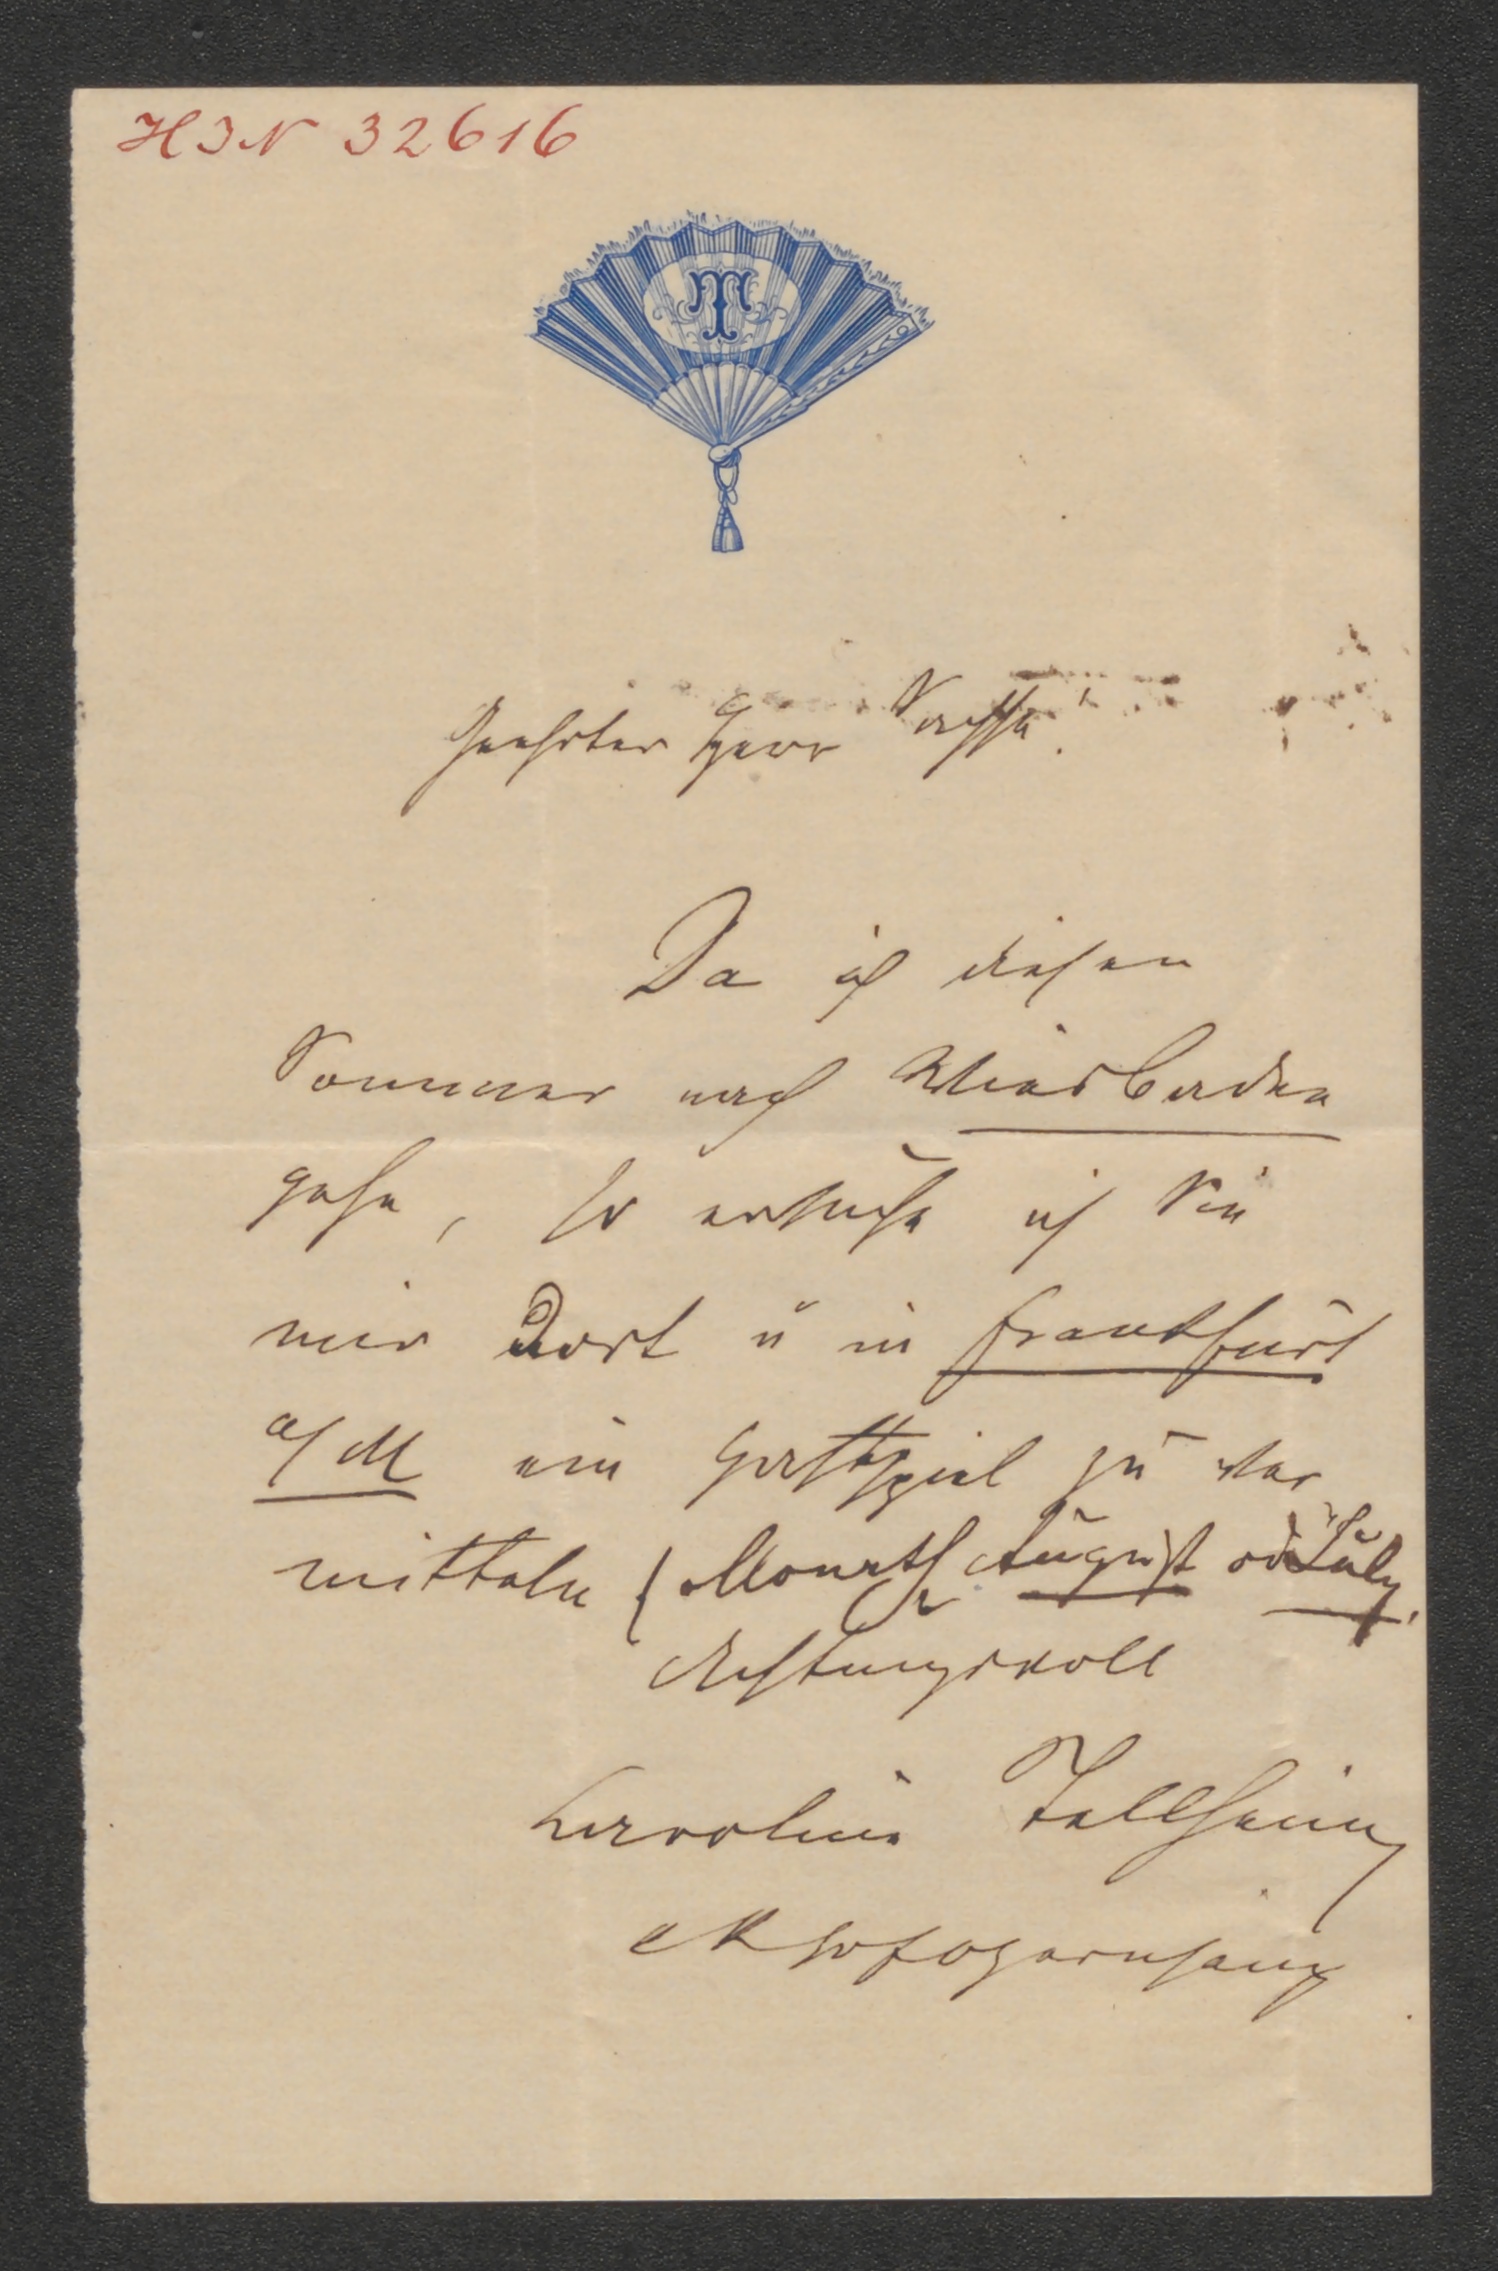 HIN 32616
T
Geehrter Herr Sachse!
Da ich diesen
Sommer nach Wiesbaden
gehe, so ersuche ich Sie
mir dort u in Frankfurt
a/M ein Gastspiel zu ver
mitteln (Monath August od July.
Achtungsvoll
Caroline Tellheim
KK Hofopernsäng